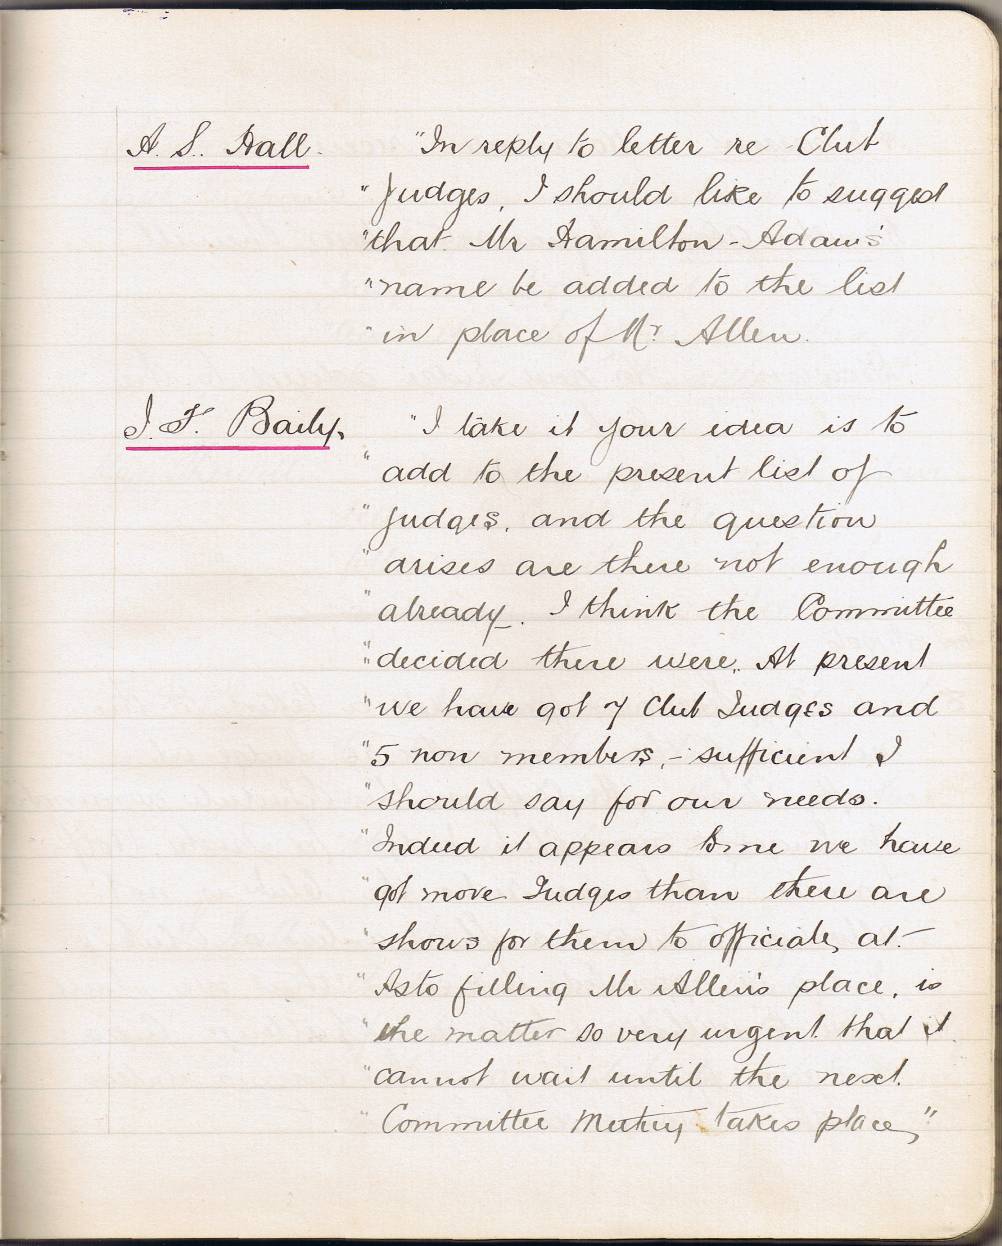 A. S. Hall.
"In reply to letter re Club
"Judges, I should like to suggest
"that Mr Hamilton-Adams'
"name be added to the list
"in place of Mr. Allen.
J. F. Baily,
"I take it your idea is to
"add to the present list of
"Judges, and the question
"arises are there not enough
"already. I think the Committee
"decided there were. At present
"we have got 7 Club Judges and
"5 non members, - sufficient I
"should say for our needs.
"Indeed it appears to me we have
"got more Judges than there are
"shows for them to officiate, at.
"As to filling Mr Allen's place, is
"the matter so very urgent that it
"cannot wait until the next
"Committee Meeting takes place,"